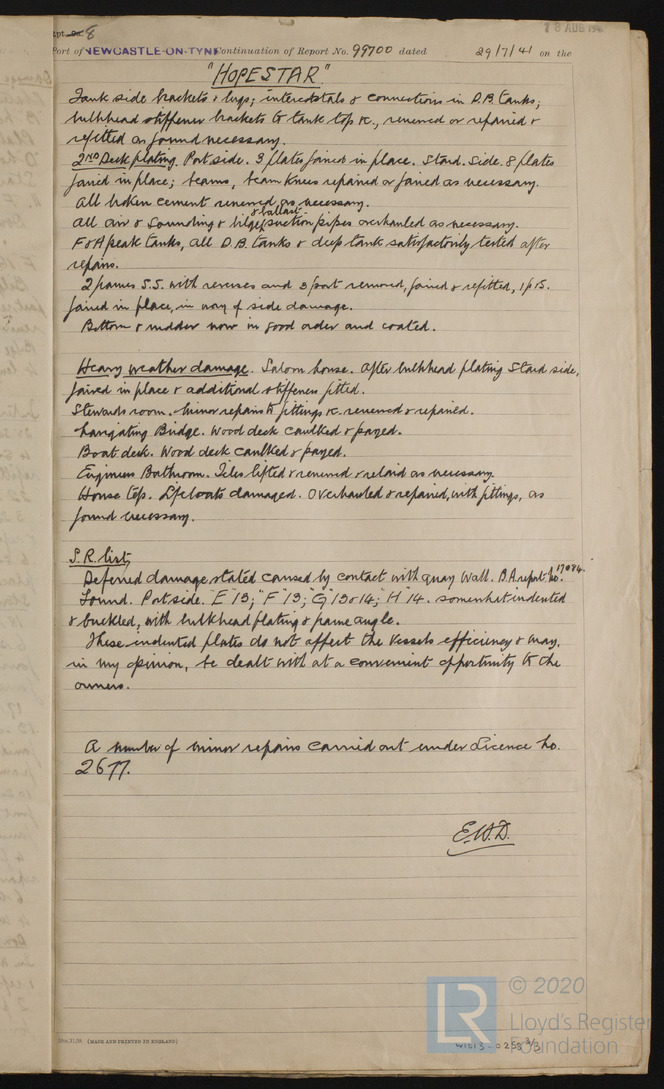 Rpt. 8
18 AUG 194
Port of NEWCASTLE-ON-TYNE Continuation of Report No. 99700 dated 29/7/41 on the
"HOPESTAR"
Tank side brackets & lugs; intercostals & connections in D.B. tanks;
bulkhead stiffener brackets to tank top &c., renewed or repaired &
refitted as found necessary.
2ND Deck plating. Port side. 3 plates faired in place. Starb. Side. 8 plates
faired in place; beams, beam knees repaired or faired as necessary.
All broken cement renewed as necessary.
All air & sounding & bilge & ballast suction pipes overhauled as necessary.
F & A peak tanks, all D.B. tanks & deep tank satisfactorily tested after
repairs.
2 frames S.S. with reverses and 3 port removed, faired & refitted, 1 p 1 S.
faired in place, in way of side damage.
Bottom & rudder now in good order and coated.
Heavy weather damage. Saloon house. After bulkhead plating Starb side,
faired in place & additional stiffeners fitted.
Stewards room. Minor repairs to fittings &c. renewed & repaired.
Navigating Bridge. Wood deck caulked & payed.
Boat deck. Wood deck caulked & payed.
Engineers Bathroom. Tiles lifted & renewed & relaid as necessary.
House top. Lifeboats damaged. Overhauled & repaired, with fittings, as
found necessary.
S.R. list
Deferred damage stated caused by contact with quay wall. B.A report No. 17084.
Found. Port side. "E" 13; "F" 13; "G" 13 & 14; "H" 14. somewhat indented
& buckled, with bulkhead plating & frame angle.
These indented plates do not affect the vessels efficiency & may,
in my opinion, be dealt with at a convenient opportunity to the
owners.
A number of minor repairs carried out under Licence No.
2677.
E.W.D.
(MADE AND PRINTED IN ENGLAND)
© 2020
LR
Lloyd's Register
Foundation
W1613-0253 3/3